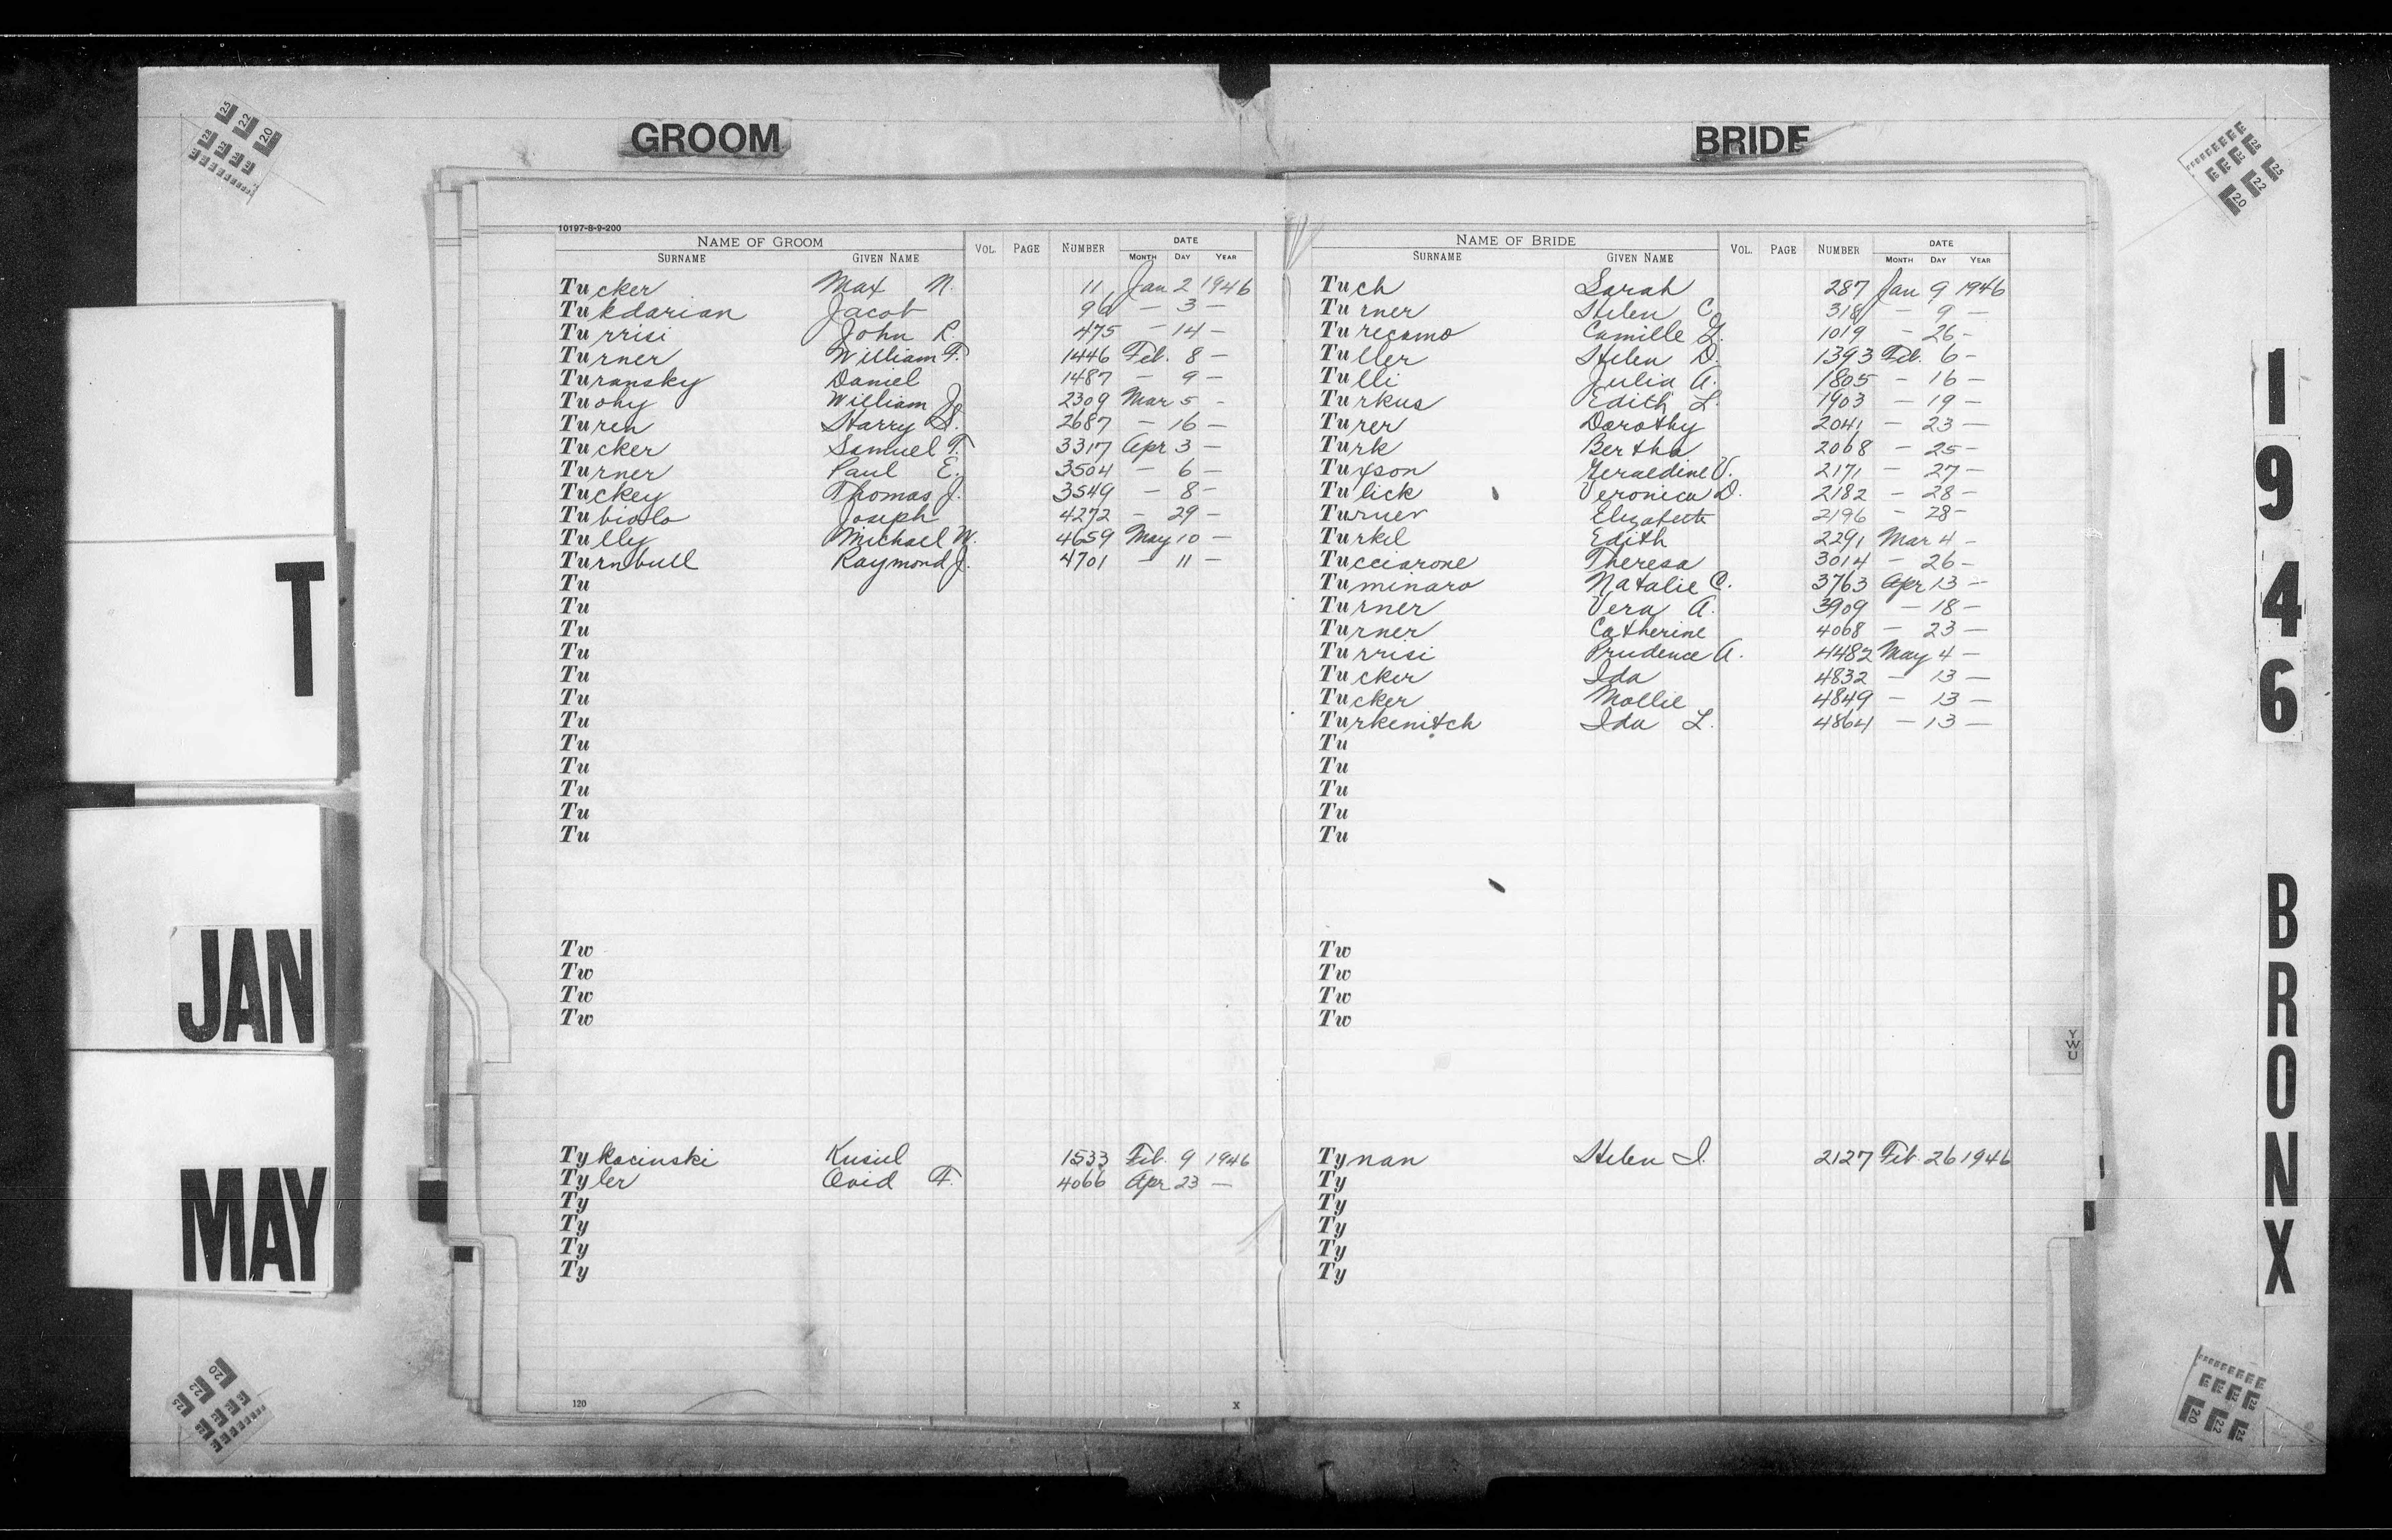 GROOM
BRIDE
T
JAN
MAY
1946 BRONX
10197-8-9-200
NAME OF GROOM VOL. PAGE NUMBER DATE
SURNAME GIVEN NAME MONTH DAY YEAR
Tucker Max N. 11 Jan 2 1946
Tukdarian Jacob 96 — 3 —
Turrisi John R. 475 — 14 —
Turner William F. 1446 Feb. 8 —
Turansky Daniel 1487 — 9 —
Tuohy William J. 2309 Mar 5 -
Turen Harry S. 2687 — 16 —
Tucker Samuel T. 3317 Apr 3 —
Turner Paul E. 3504 — 6 —
Tuckey Thomas J. 3549 — 8 —
Tubiolo Joseph 4272 — 29 —
Tully Michael W. 4659 May 10 —
Turnbull Raymond J. 4701 — 11 —
Tu
Tu
Tu
Tu
Tu
Tu
Tu
Tu
Tu
Tu
Tu
Tu
Tw
Tw
Tw
Tw
Tykocinski Kusiel 1533 Feb. 9 1946
Tyler Ovid F. 4066 Apr 23 —
Ty
Ty
Ty
Ty
120 X
NAME OF BRIDE VOL. PAGE NUMBER DATE
SURNAME GIVEN NAME MONTH DAY YEAR
Tuch Sarah 287 Jan 9 1946
Turner Helen C. 318 — 9 —
Turecamo Camille G. 1019 — 26 —
Tuller Helen D. 1393 Feb. 6 —
Tulli Julia A. 1805 — 16 —
Turkus Edith L. 1903 — 19 —
Turer Dorothy 2041 — 23 —
Turk Bertha 2068 — 25 —
Tuxson Geraldine V. 2171 — 27 —
Tulick Veronica D. 2182 — 28 —
Turner Elizabeth 2196 — 28 —
Turkel Edith 2291 Mar 4 -
Tucciarone Theresa 3014 — 26 —
Tuminaro Natalie C. 3763 Apr 13 —
Turner Vera A. 3909 — 18 —
Turner Catherine 4068 — 23 —
Turrisi Prudence A. 4482 May 4 —
Tucker Ida 4832 — 13 —
Tucker Mollie 4849 — 13 —
Turkenitch Ida L. 4864 — 13 —
Tu
Tu
Tu
Tu
Tu
Tw
Tw
Tw
Tw
Tynan Helen I. 2127 Feb. 26 1946
Ty
Ty
Ty
Ty
Ty
Y
W
U